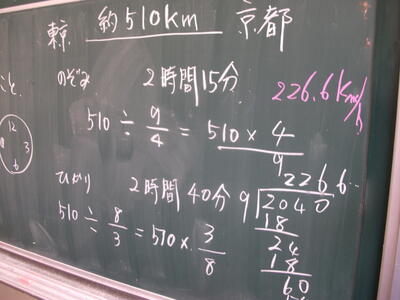 東京 約510km 京都
のぞみ 2時間15分 226.6km/h
510 ÷ 9/4 = 510 × 4 / 9
12
3
6
ひかり 2時間40分
510 ÷ 8/3 = 510 × 3/8
226 6..
9 2040
18
24
18
60